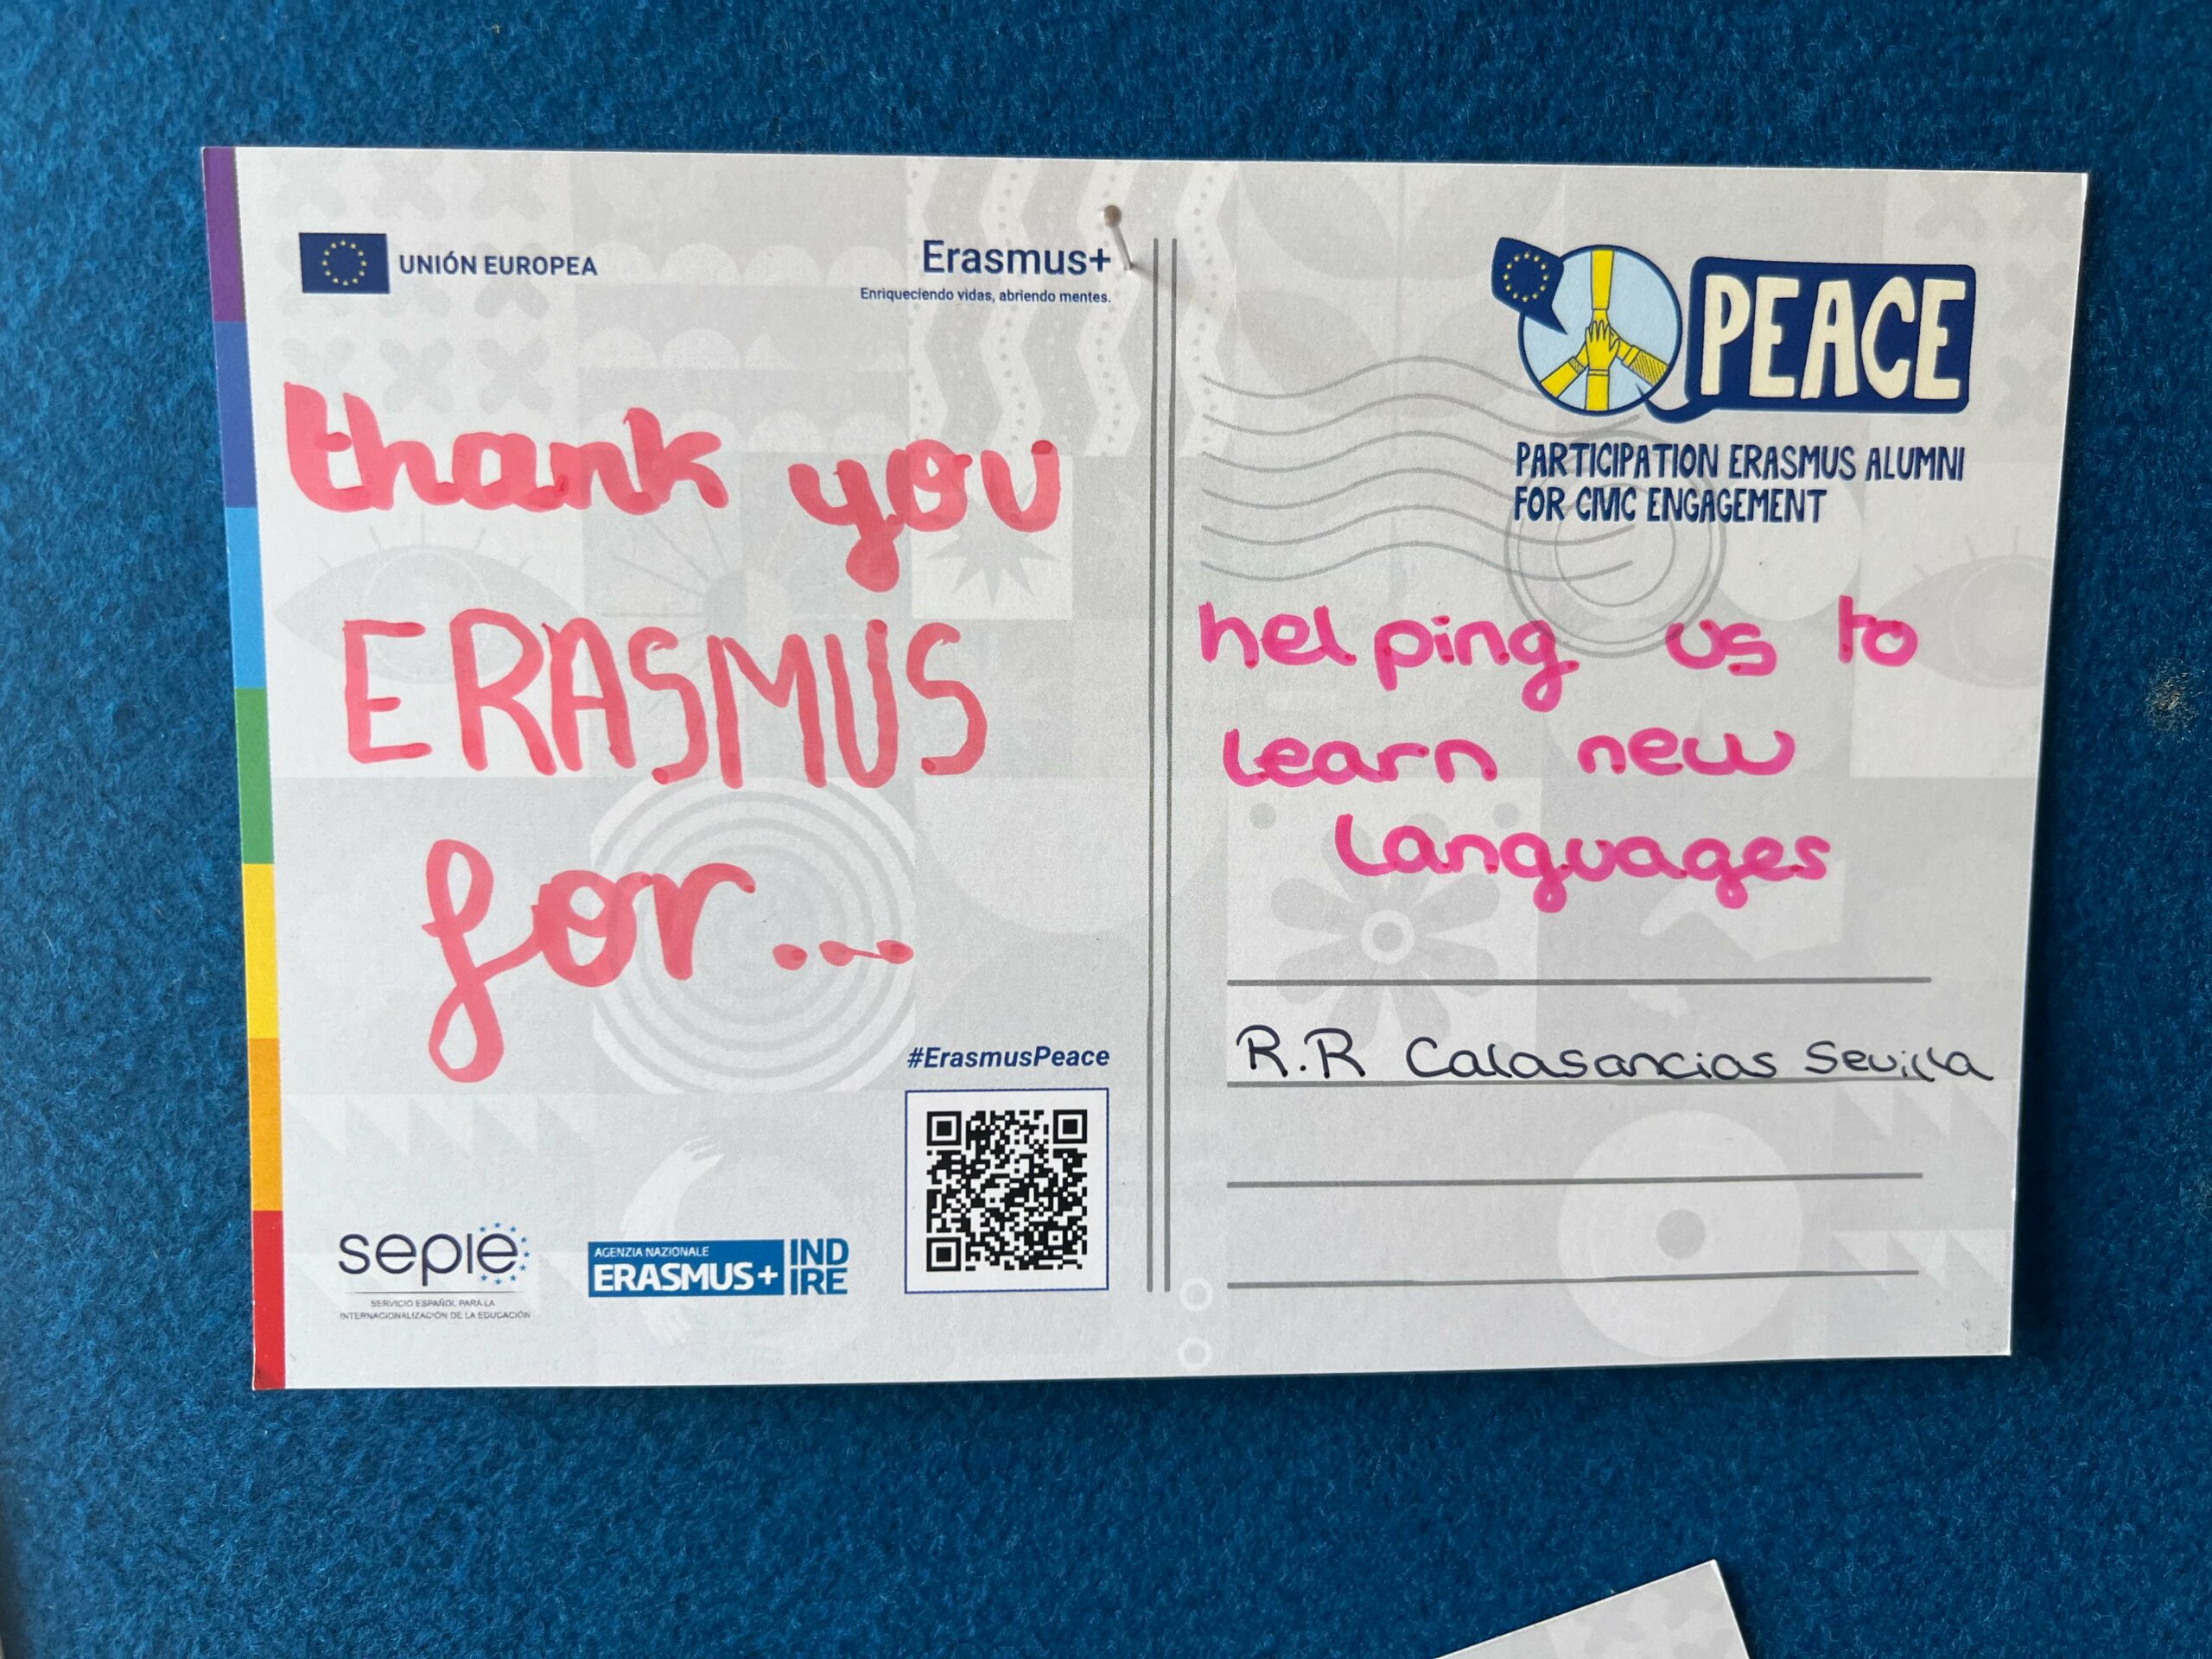 UNIÓN EUROPEA
Erasmus+
Enriqueciendo vidas, abriendo mentes.
thank you
ERASMUS
for...
#ErasmusPeace
sepie
SERVICIO ESPAÑOL PARA LA
INTERNACIONALIZACIÓN DE LA EDUCACIÓN
AGENZIA NAZIONALE
ERASMUS+
IND
IRE
PEACE
PARTICIPATION ERASMUS ALUMNI
FOR CIVIC ENGAGEMENT
helping us to
learn new
languages
R.R Calasancias Sevilla